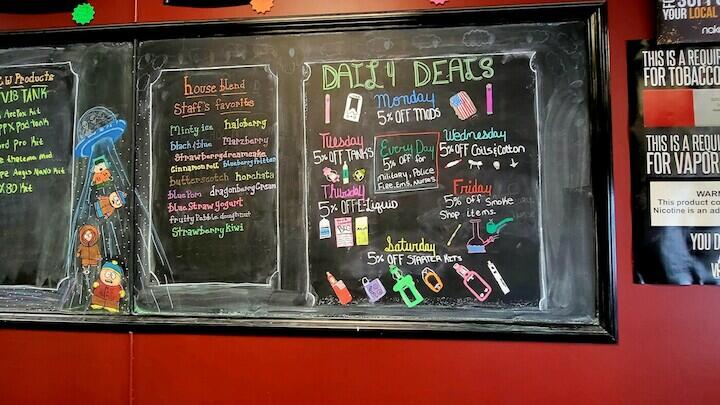 Products
VIB TANK
Kit
PPX Pod Tank
Pro Kit
Mod
Aegis Nano Kit
X80 Kit
house blend
Staff's favorites
Minty ice haloberry
black & blue Marzberry
Strawberry dreamcake
Cinnamon roll blueberry
butterscotch horchata
blue Pom dragonberry Cream
blue Straw yogurt
fruity Pebble doughnut
Strawberry kiwi
DAILY DEALS
Monday
5% OFF MODS
Tuesday
5% OFF TANKS
Every Day
5% OFF for
Military, Police
Fire, Ems, Nurses
Wednesday
5% OFF Coils & Cotton
Thursday
5% OFF E-Liquid
Friday
5% OFF Smoke
Shop items.
Saturday
5% OFF STARTER KITS
YOUR LOCAL
THIS IS A REQUIR
FOR TOBACCO
THIS IS A REQUI
FOR VAPOR
WAR
This product co
Nicotine is an ad
YOU D